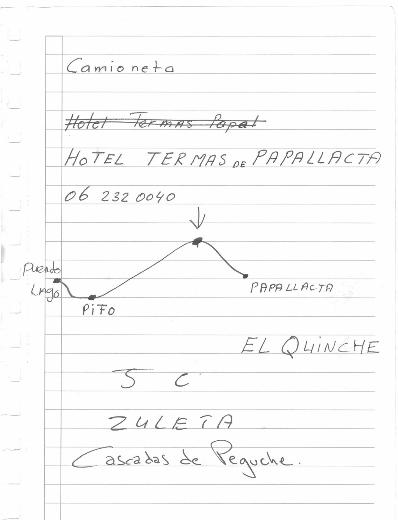 Camioneta
Hotel Termas Papal
HOTEL TERMAS DE PAPALLACTA
06 232 0040
Puembo
Lago
PIFO
PAPALLACTA
EL QUINCHE
5 C
ZULETA
Cascadas de Peguche.